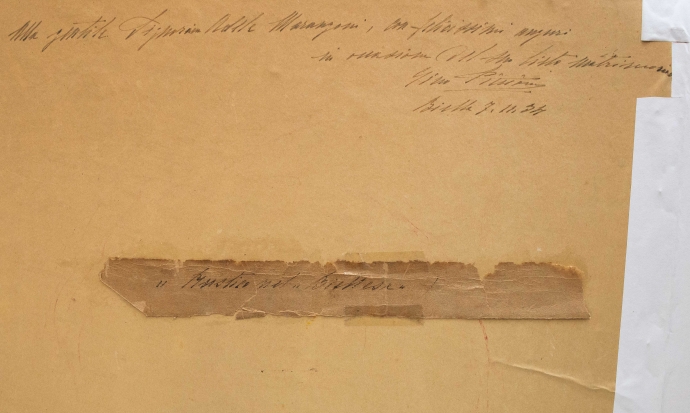 Alla gentile Signorina Adele Marangoni, con felicissimi auguri
in occasione del Suo lieto matrimonio
Gino
Biella 7.11.34
" Rustica nel Biellese "